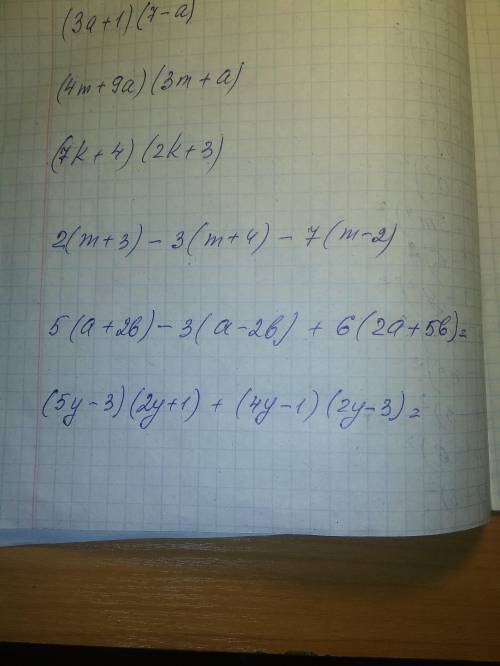 (3a+1)(7-a)
(4m+9a)(3m+a)
(7k+4)(2k+3)
2(m+3)-3(m+4)-7(m-2)
5(a+2b)-3(a-2b)+6(2a+5b)=
(5y-3)(2y+1)+(4y-1)(2y-3)=